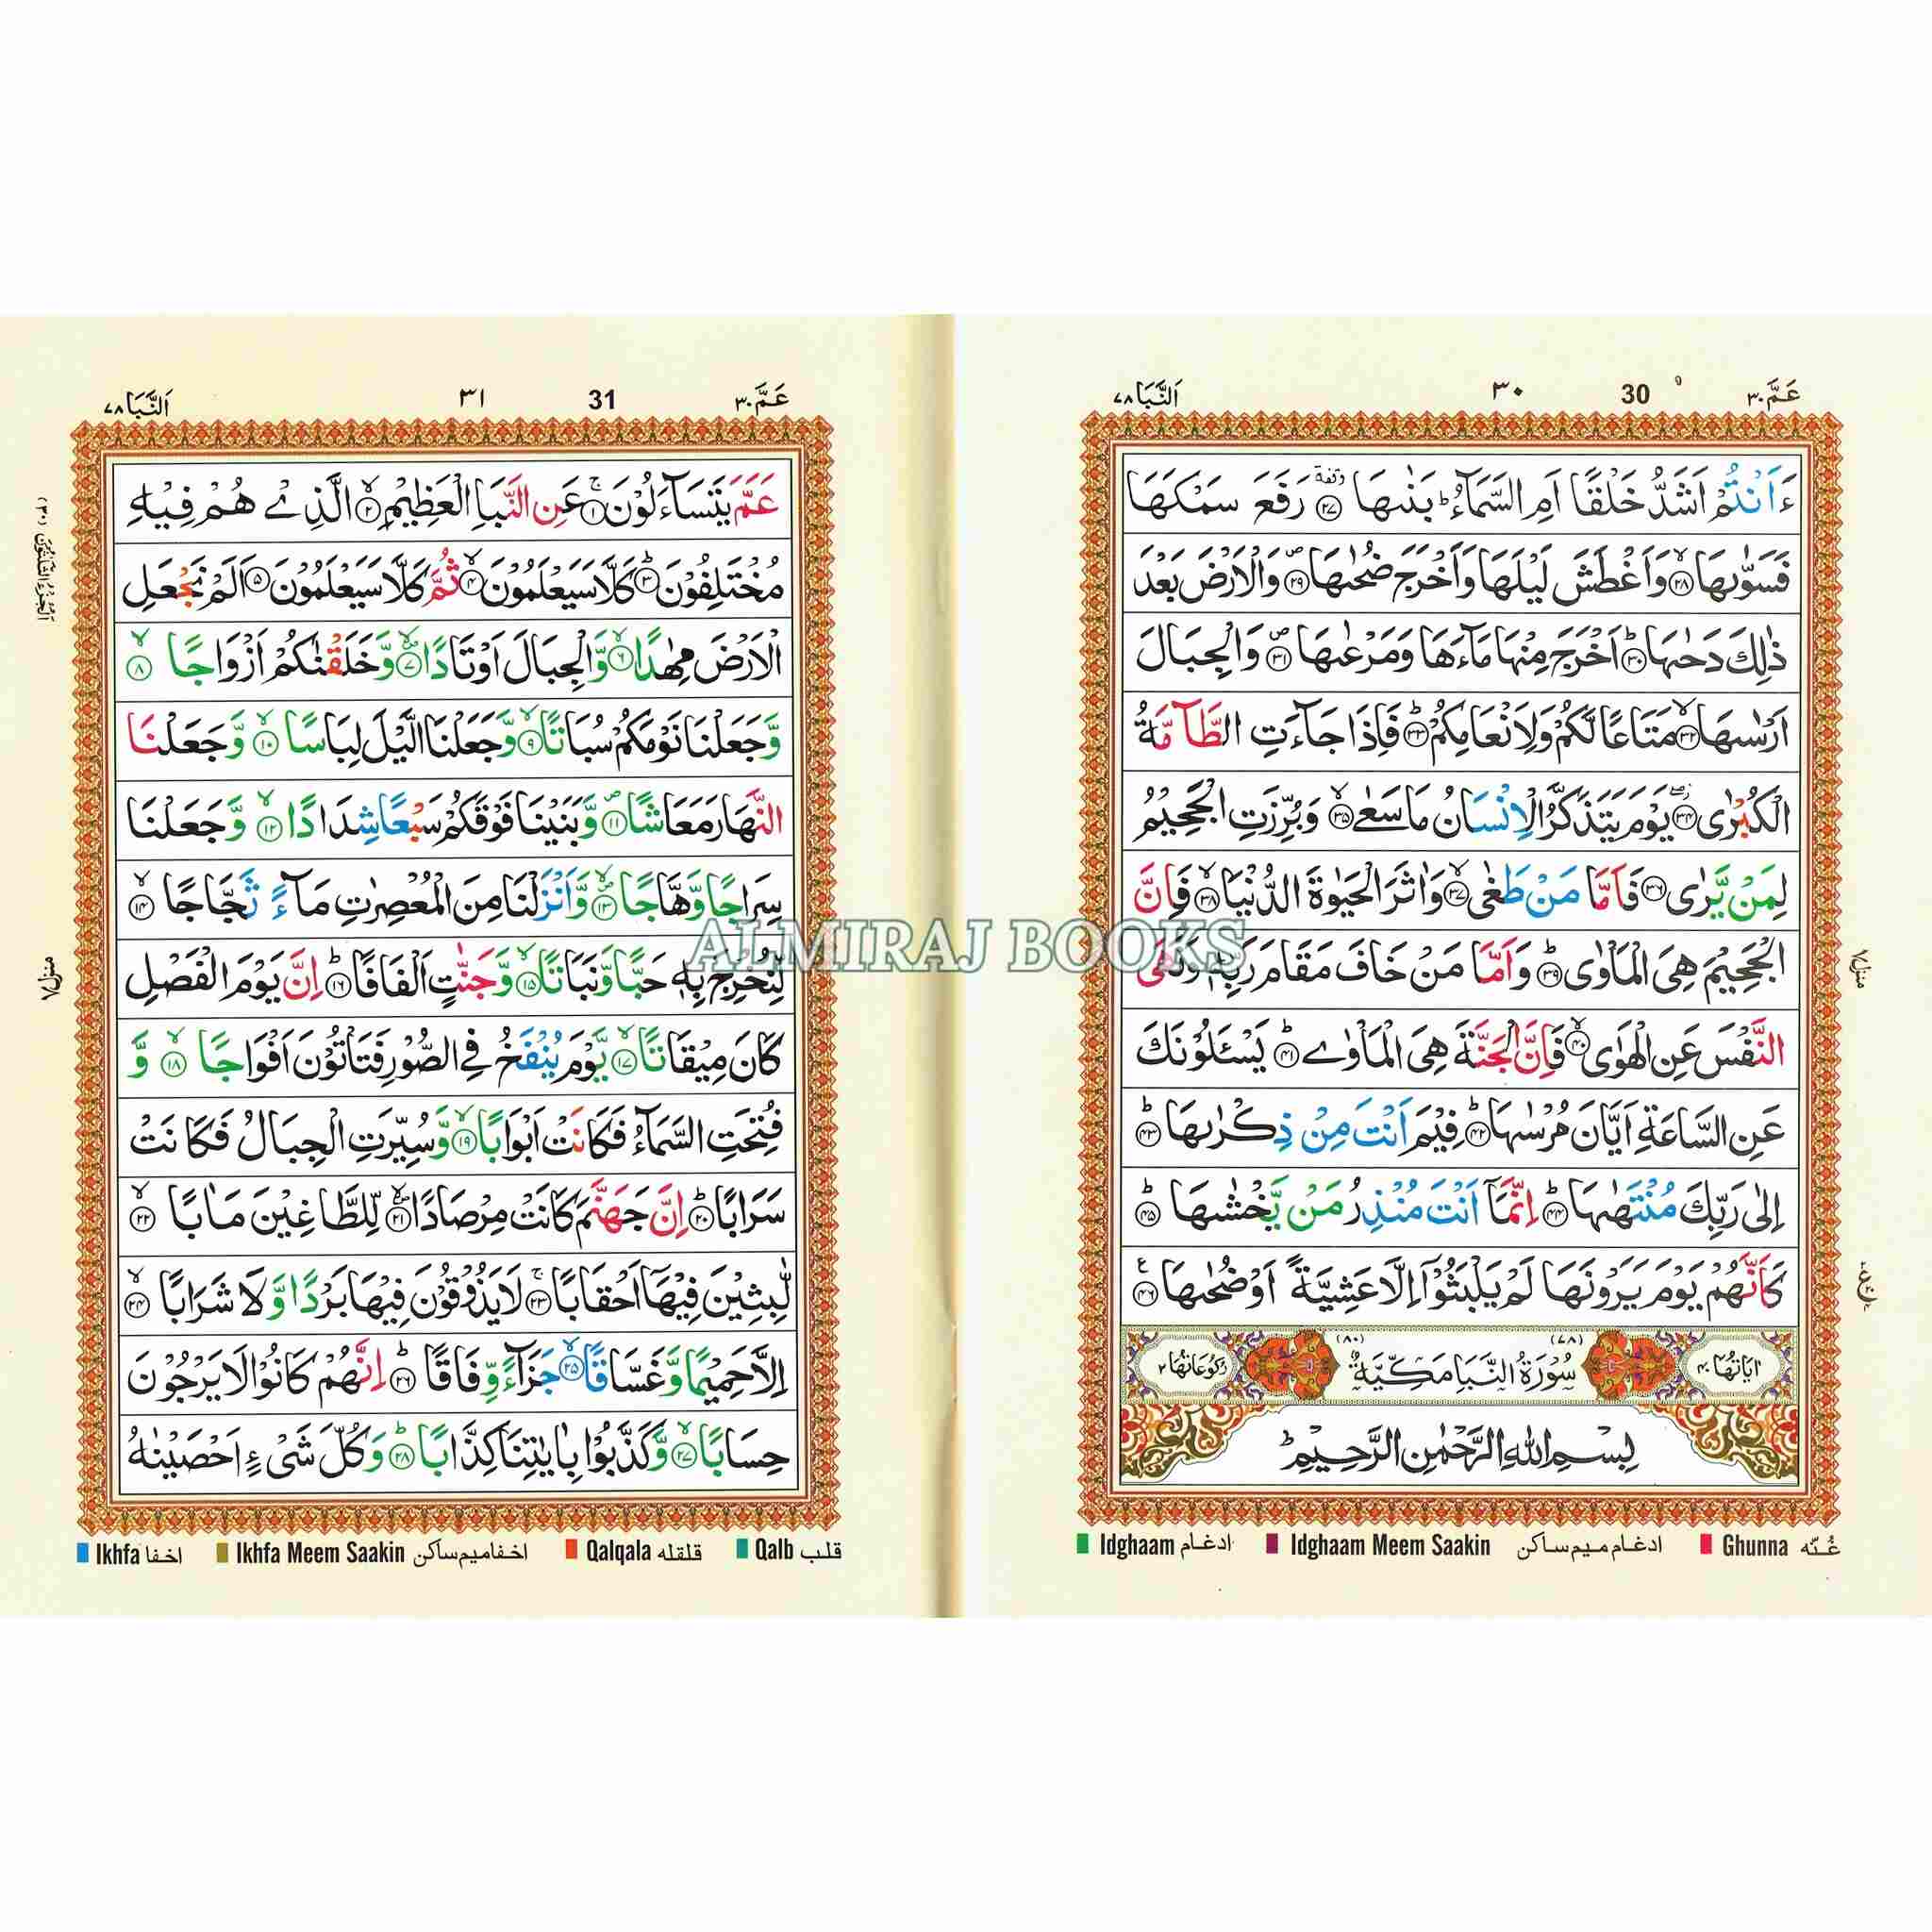 عَمَّ ٣٠ 30 ٣٠ اَلنَّبَا ٧٨
ءَاَنْتُمْ اَشَدُّ خَلْقًا اَمِ السَّمَآءُ ؕ بَنٰىهَا ۟ وقفة ﴿۲۷﴾ رَفَعَ سَمْكَهَا
فَسَوّٰىهَا ۙ﴿۲۸﴾ وَاَغْطَشَ لَيْلَهَا وَاَخْرَجَ ضُحٰىهَا ۪﴿۲۹﴾ وَالْاَرْضَ بَعْدَ
ذٰلِكَ دَحٰىهَا ؕ﴿۳۰﴾ اَخْرَجَ مِنْهَا مَآءَهَا وَمَرْعٰىهَا ۪﴿۳۱﴾ وَالْجِبَالَ
اَرْسٰىهَا ۙ﴿۳۲﴾ مَتَاعًا لَّكُمْ وَلِاَنْعَامِكُمْ ؕ﴿۳۳﴾ فَاِذَا جَآءَتِ الطَّآمَّةُ
الْكُبْرٰى ۖ﴿۳۴﴾ يَوْمَ يَتَذَكَّرُ الْاِنْسَانُ مَا سَعٰى ۙ﴿۳۵﴾ وَبُرِّزَتِ الْجَحِيْمُ
لِمَنْ يَّرٰى ﴿۳۶﴾ فَاَمَّا مَنْ طَغٰى ۙ﴿۳۷﴾ وَاٰثَرَ الْحَيٰوةَ الدُّنْيَا ۙ﴿۳۸﴾ فَاِنَّ
الْجَحِيْمَ هِىَ الْمَاْوٰى ؕ﴿۳۹﴾ وَاَمَّا مَنْ خَافَ مَقَامَ رَبِّهٖ وَنَهَى
النَّفْسَ عَنِ الْهَوٰى ۙ﴿۴۰﴾ فَاِنَّ الْجَنَّةَ هِىَ الْمَاْوٰى ؕ﴿۴۱﴾ يَسْـَٔلُوْنَكَ
عَنِ السَّاعَةِ اَيَّانَ مُرْسٰىهَا ؕ﴿۴۲﴾ فِيْمَ اَنْتَ مِنْ ذِكْرٰىهَا ؕ﴿۴۳﴾
اِلٰى رَبِّكَ مُنْتَهٰىهَا ؕ﴿۴۴﴾ اِنَّمَآ اَنْتَ مُنْذِرُ مَنْ يَّخْشٰىهَا ؕ﴿۴۵﴾
كَاَنَّهُمْ يَوْمَ يَرَوْنَهَا لَمْ يَلْبَثُوْٓا اِلَّا عَشِيَّةً اَوْ ضُحٰىهَا ﴿۴۶﴾
اٰيَاتُهَا ۴۰ (٧٨) سُوْرَةُ النَّبَاِ مَكِّيَّةٌ (٨٠) رُكُوْعَاتُهَا ۲
بِسْمِ اللّٰهِ الرَّحْمٰنِ الرَّحِيْمِ
منزل ٧
Idghaam ادغام Idghaam Meem Saakin ادغام میم ساکن Ghunna غُنّه
عَمَّ ٣٠ 31 ٣١ اَلنَّبَا ٧٨
عَمَّ يَتَسَآءَلُوْنَ ۚ﴿۱﴾ عَنِ النَّبَاِ الْعَظِيْمِ ۙ﴿۲﴾ الَّذِىْ هُمْ فِيْهِ
مُخْتَلِفُوْنَ ؕ﴿۳﴾ كَلَّا سَيَعْلَمُوْنَ ۙ﴿۴﴾ ثُمَّ كَلَّا سَيَعْلَمُوْنَ ﴿۵﴾ اَلَمْ نَجْعَلِ
الْاَرْضَ مِهٰدًا ۙ﴿۶﴾ وَّالْجِبَالَ اَوْتَادًا ۪ۙ﴿۷﴾ وَّخَلَقْنٰكُمْ اَزْوَاجًا ۙ﴿۸﴾
وَّجَعَلْنَا نَوْمَكُمْ سُبَاتًا ۙ﴿۹﴾ وَّجَعَلْنَا الَّيْلَ لِبَاسًا ۙ﴿۱۰﴾ وَّجَعَلْنَا
النَّهَارَ مَعَاشًا ۪﴿۱۱﴾ وَّبَنَيْنَا فَوْقَكُمْ سَبْعًا شِدَادًا ۙ﴿۱۲﴾ وَّجَعَلْنَا
سِرَاجًا وَّهَّاجًا ۪ۙ﴿۱۳﴾ وَّاَنْزَلْنَا مِنَ الْمُعْصِرٰتِ مَآءً ثَجَّاجًا ۙ﴿۱۴﴾
لِّنُخْرِجَ بِهٖ حَبًّا وَّنَبَاتًا ۙ﴿۱۵﴾ وَّجَنّٰتٍ اَلْفَافًا ؕ﴿۱۶﴾ اِنَّ يَوْمَ الْفَصْلِ
كَانَ مِيْقَاتًا ۙ﴿۱۷﴾ يَّوْمَ يُنْفَخُ فِى الصُّوْرِ فَتَاْتُوْنَ اَفْوَاجًا ۙ﴿۱۸﴾ وَّ
فُتِحَتِ السَّمَآءُ فَكَانَتْ اَبْوَابًا ۙ﴿۱۹﴾ وَّسُيِّرَتِ الْجِبَالُ فَكَانَتْ
سَرَابًا ؕ﴿۲۰﴾ اِنَّ جَهَنَّمَ كَانَتْ مِرْصَادًا ۪ۙ﴿۲۱﴾ لِّلطَّاغِيْنَ مَاٰبًا ۙ﴿۲۲﴾
لّٰبِثِيْنَ فِيْهَآ اَحْقَابًا ۚ﴿۲۳﴾ لَا يَذُوْقُوْنَ فِيْهَا بَرْدًا وَّلَا شَرَابًا ۙ﴿۲۴﴾
اِلَّا حَمِيْمًا وَّغَسَّاقًا ۙ﴿۲۵﴾ جَزَآءً وِّفَاقًا ؕ﴿۲۶﴾ اِنَّهُمْ كَانُوْا لَا يَرْجُوْنَ
حِسَابًا ۙ﴿۲۷﴾ وَّكَذَّبُوْا بِاٰيٰتِنَا كِذَّابًا ؕ﴿۲۸﴾ وَكُلَّ شَىْءٍ اَحْصَيْنٰهُ
اَلْجُزْءُ الثَّلٰثُوْنَ (٣٠)
منزل ٧
Ikhfa اخفا Ikhfa Meem Saakin اخفا میم ساکن Qalqala قلقله Qalb قلب
ALMIRAJ BOOKS